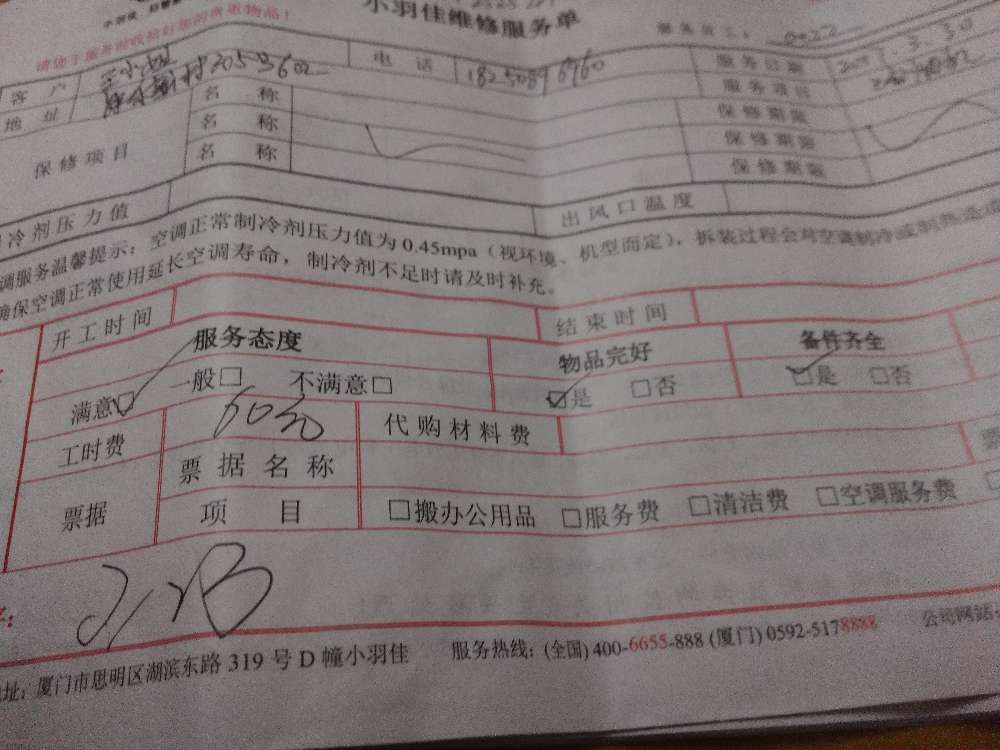 请您于服务前收拾好您的贵重物品！
小羽佳维修服务单
服务员工： 0022
客户 电话 服务日期
地址 服务项目
保修项目 名称 保修期限
名称 保修期限
名称 保修期限
冷剂压力值 出风口温度
调服务温馨提示：空调正常制冷剂压力值为0.45mpa（视环境、机型而定），拆装过程会对空调制冷或制热造成
确保空调正常使用延长空调寿命，制冷剂不足时请及时补充。
开工时间 结束时间
服务态度 物品完好 备件齐全
满意☑ 一般□ 不满意□ ☑是 □否 ☑是 □否
工时费 60元 代购材料费
票据 票据名称
项目 □搬办公用品 □服务费 □清洁费 □空调服务费
址：厦门市思明区湖滨东路 319 号 D 幢小羽佳 服务热线：(全国) 400-6655-888 (厦门) 0592-5178888 公司网站